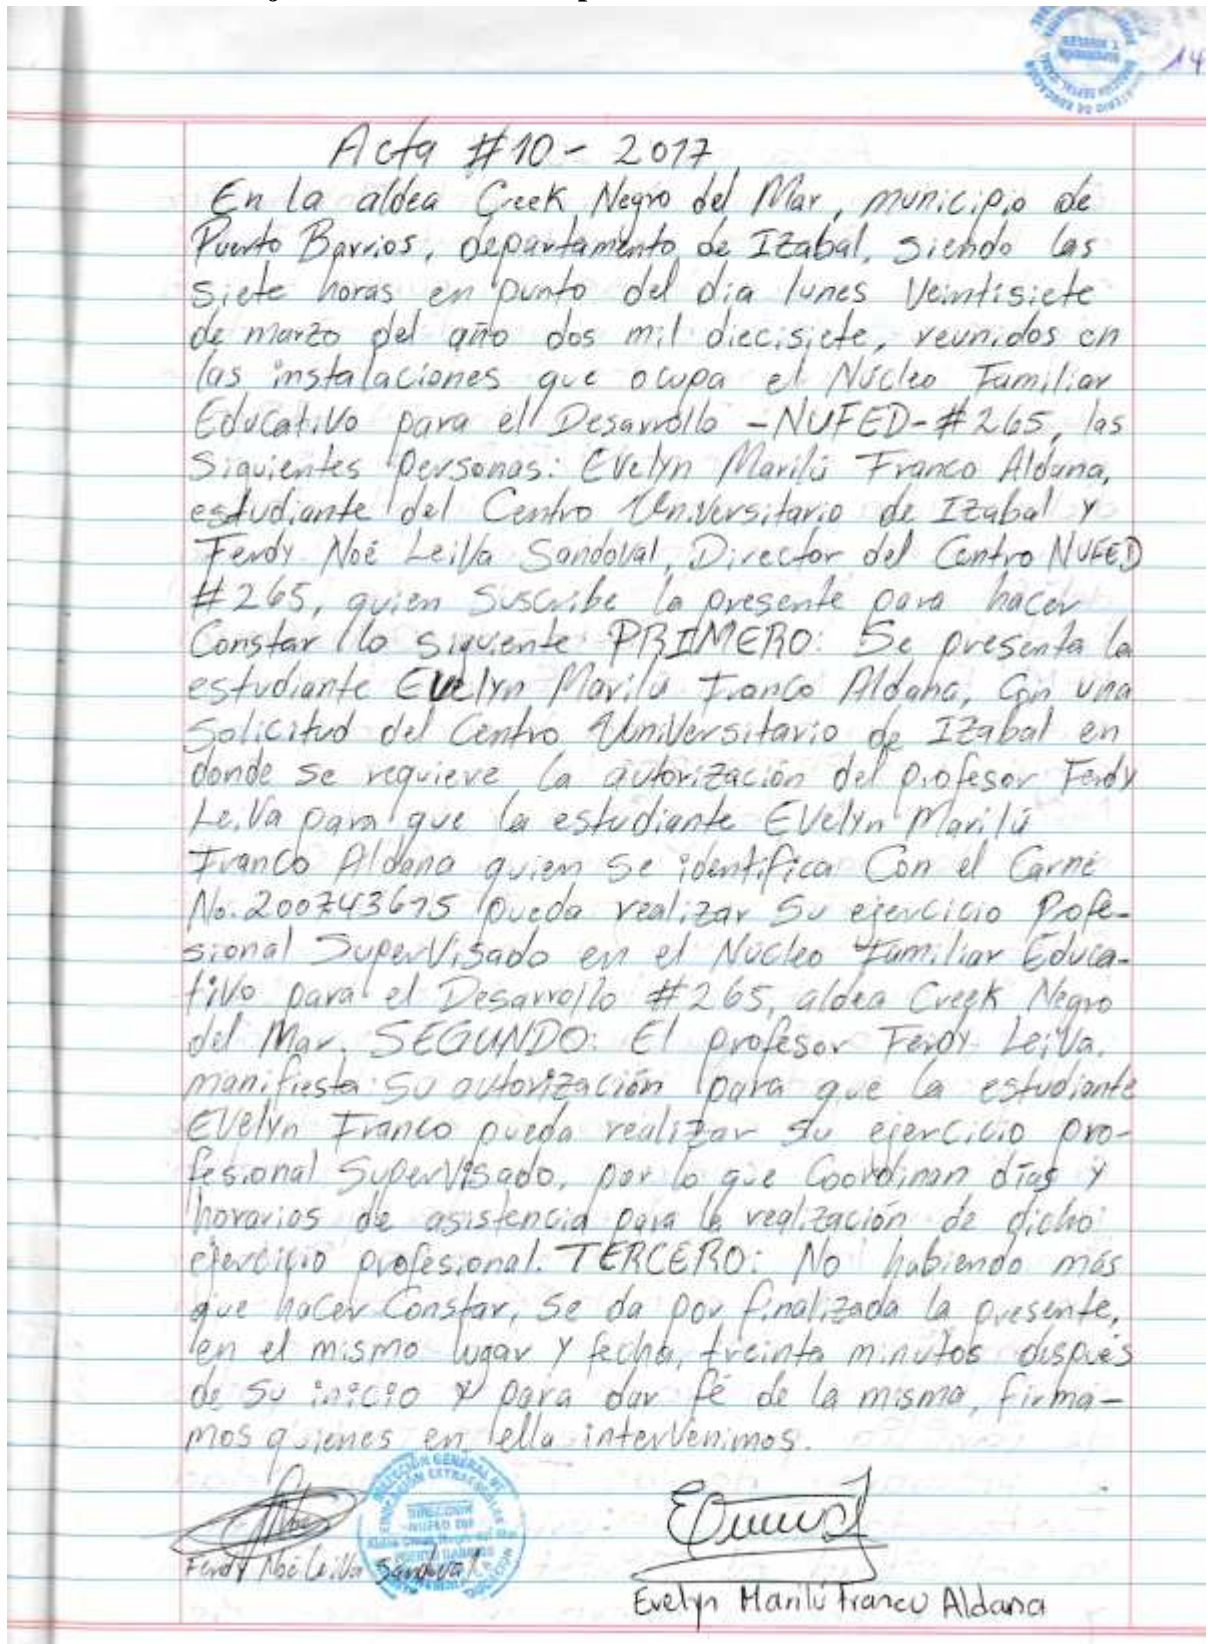 14
Acta #10 - 2017
En la aldea Creek Negro del Mar, municipio de
Puerto Barrios, departamento de Izabal, siendo las
siete horas en punto del dia lunes veintisiete
de marzo del año dos mil diecisiete, reunidos en
las instalaciones que ocupa el Núcleo Familiar
Educativo para el Desarrollo -NUFED-#265, las
siguientes personas: Evelyn Marilú Franco Aldana,
estudiante del Centro Universitario de Izabal y
Ferdy Noé Leiva Sandoval, Director del Centro NUFED
#265, quien suscribe la presente para hacer
Constar lo siguiente PRIMERO: Se presenta la
estudiante Evelyn Marilú Franco Aldana, con una
solicitud del Centro Universitario de Izabal en
donde se requiere la autorización del profesor Ferdy
Leiva para que la estudiante Evelyn Marilú
Franco Aldana quien se identifica Con el Carné
No. 200743615 pueda realizar su ejercicio Profe-
sional Supervisado en el Núcleo Familiar Educa-
tivo para el Desarrollo #265, aldea Creek Negro
del Mar. SEGUNDO: El profesor Ferdy Leiva,
manifiesta su autorización para que la estudiante
Evelyn Franco pueda realizar su ejercicio pro-
fesional Supervisado, por lo que Coordinan días y
horarios de asistencia para la realización de dicho
ejercicio profesional. TERCERO: No habiendo más
que hacer Constar, se da por finalizada la presente,
en el mismo lugar y fecha, treinta minutos después
de su inicio y para dar fé de la misma, firma-
mos quienes en ella intervenimos.
Ferdy Noé Leiva Sandoval
Evelyn Marilú Franco Aldana